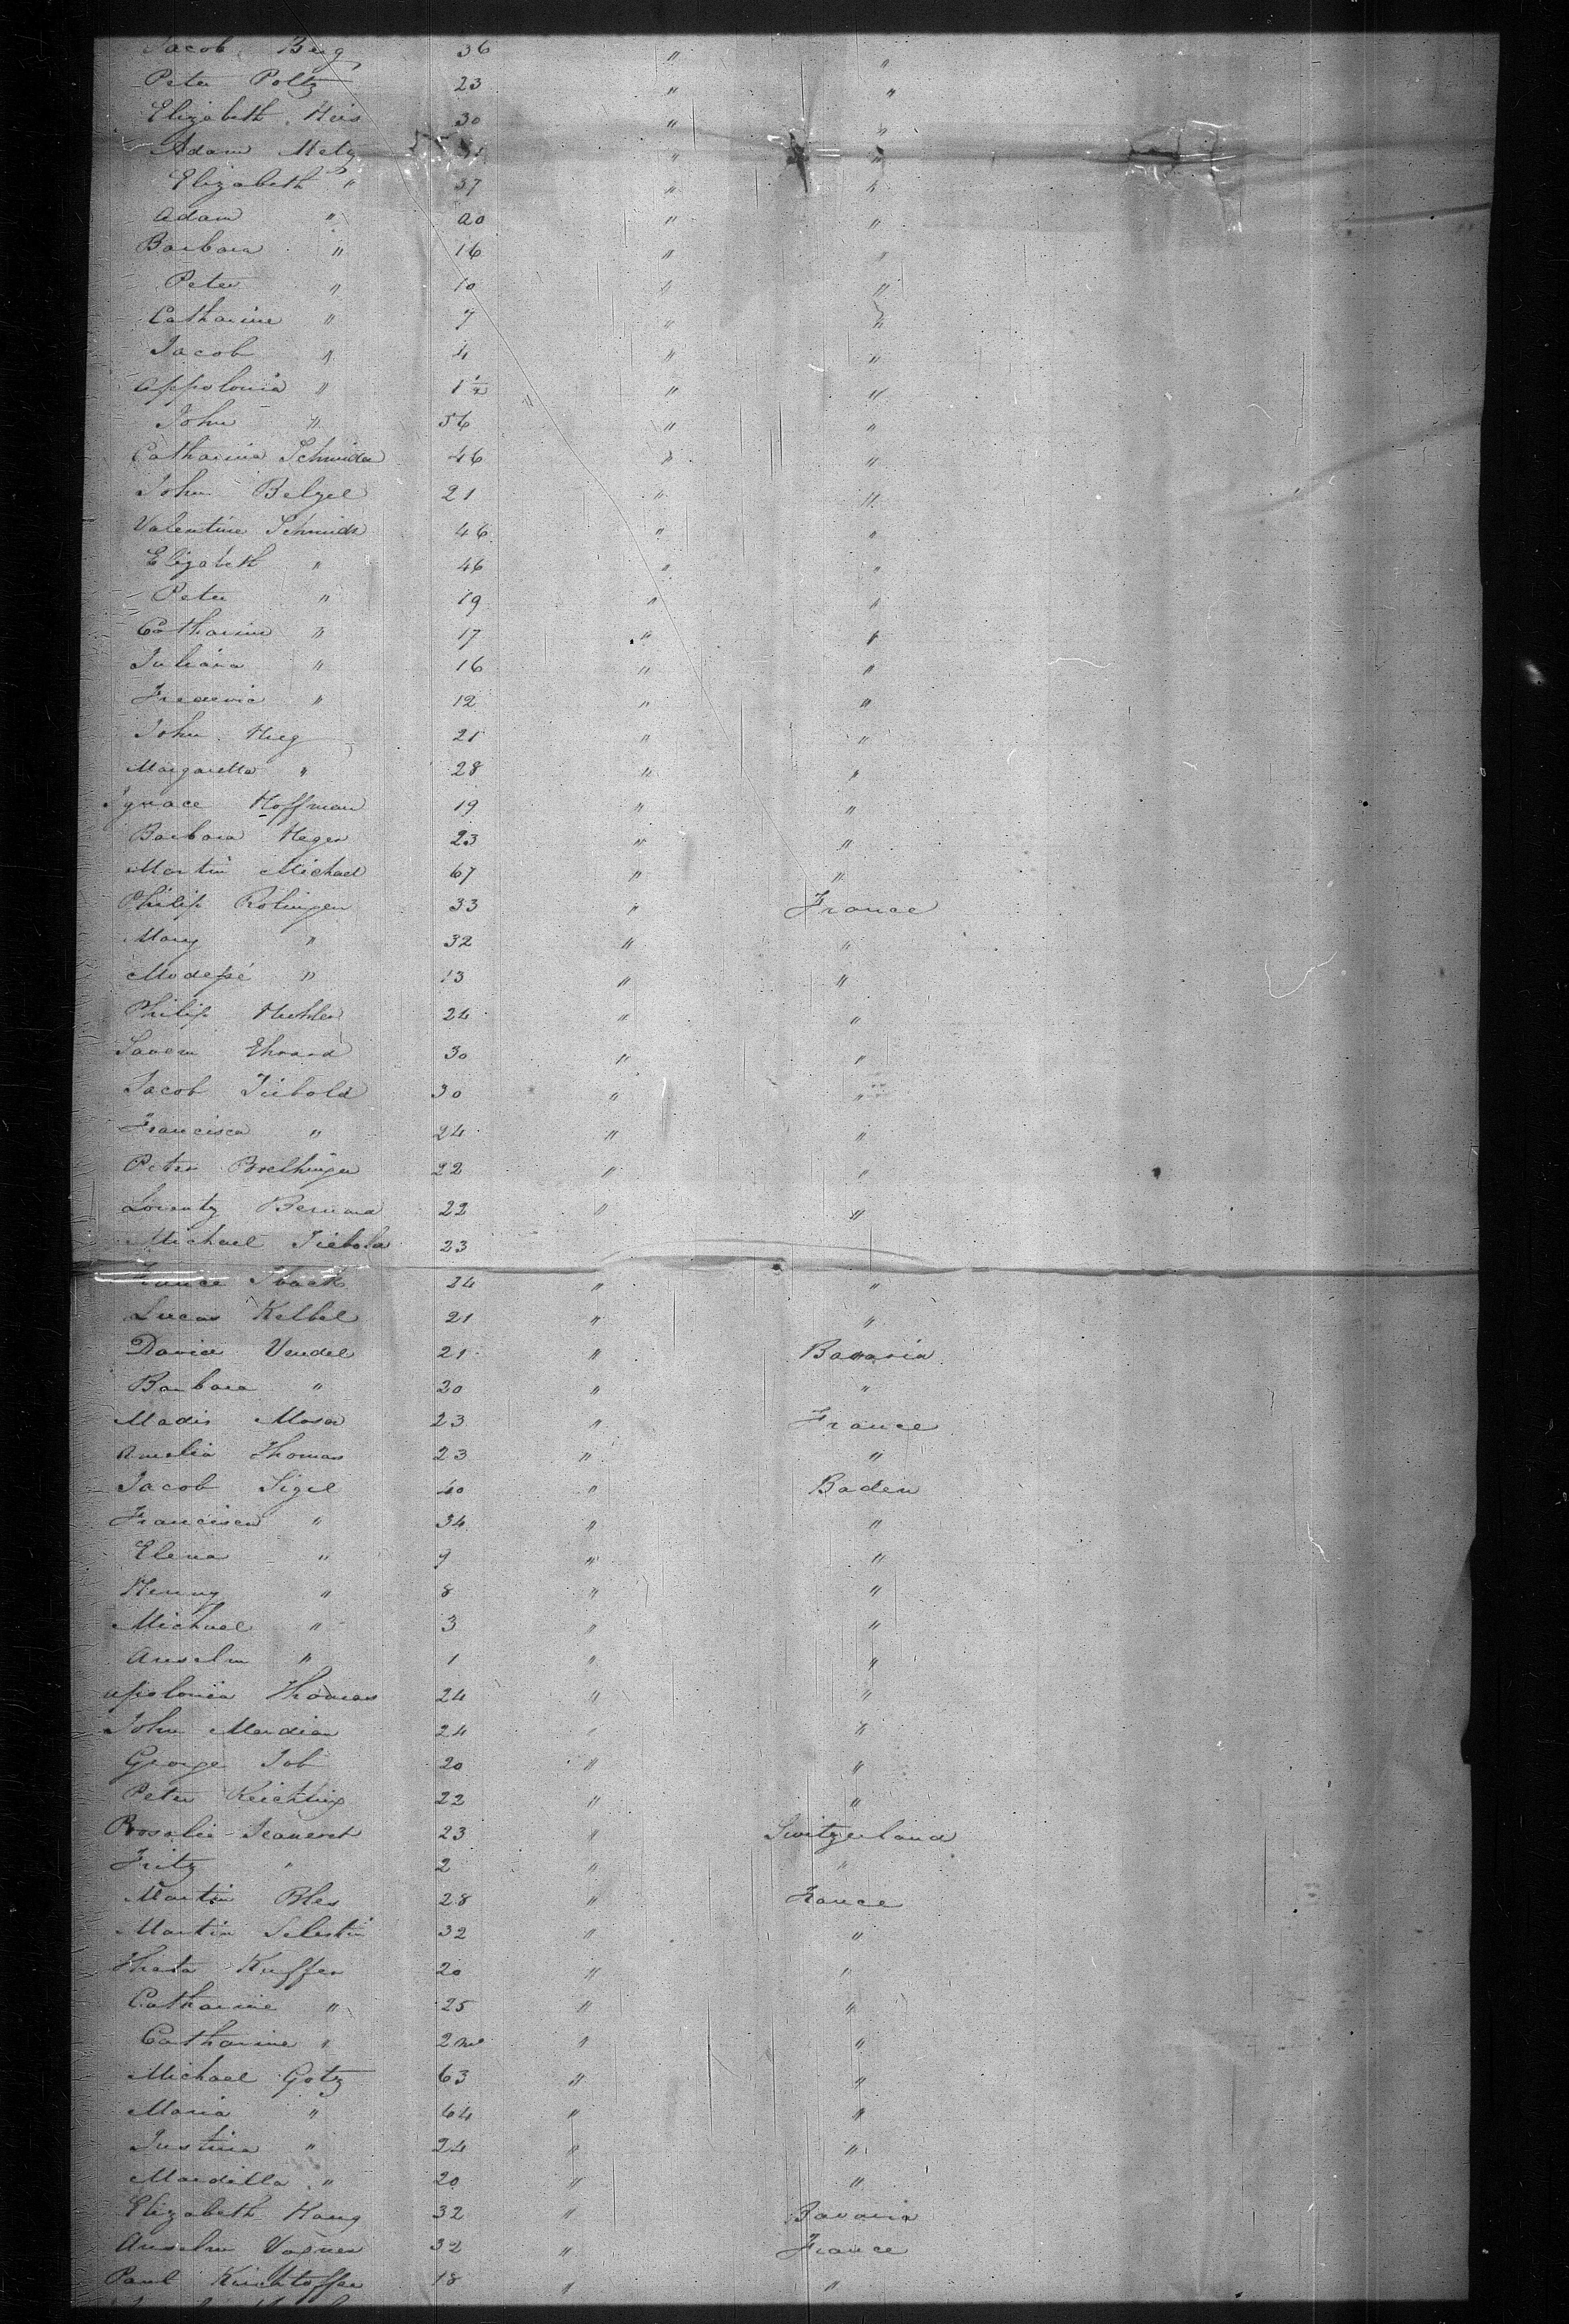 Jacob Bug 36 " "
Peter Poltz 23 " "
Elizabeth Heis 30 " "
Adam Metz " "
Elizabeth " 37 " "
Adam " 20 " "
Barbara " 16 " "
Peter " 10 " "
Catharine " 7 " "
Jacob " 4 " "
Appolonia " 1½ " "
John " 56 " "
Catharina Schmider 46 " "
John Belzel 21 " "
Valentine Schmidt 46 " "
Elizabeth " 46 " "
Peter " 19 " "
Catharine " 17 " "
Juliana " 16 " "
Frederic " 12 " "
John Hieg 21 " "
Margaretta " 28 " "
Ignace Hoffman 19 " "
Barbara Heger 23 " "
Martin Michael 67 " "
Philip Rolingen 33 " France
Mary " 32 " "
" 13 " "
Philip 24 " "
Ehrard 30 " "
Jacob Tiebold 30 " "
Francisca " 24 " "
Peter Brelhinger 22 " "
Lorentz Bernard 22 " "
Michael Tiebold 23
24 " "
Lucas Kelbel 21 " "
David Vendel 21 " Bavaria
Barbara " 20 " "
Madis Moser 23 " France
Amelia Thomas 23 " "
Jacob Sigel 40 " Baden
Francisca " 34 " "
Elena " 9 " "
Henry " 8 " "
Michael " 3 " "
Anselm " 1 " "
Apolonia Thomas 24 " "
John Merdian 24 " "
George Job 20 " "
Peter Keichling 22 " "
Rosalie Jeaneret 23 " Switzerland
Fritz " 2 " "
Martin Bles 28 " France
Martin Selestin 32 " "
Kuffer 20 " "
Catharine " 25 " "
Catharine " 2 mo " "
Michael Gotz 63 " "
Maria " 64 " "
Justina " 24 " "
Mardilla " 20 " "
Elizabeth Haug 32 " Bavaria
Anselm Vagner 32 " France
Paul Kirchtoffer 18 " "